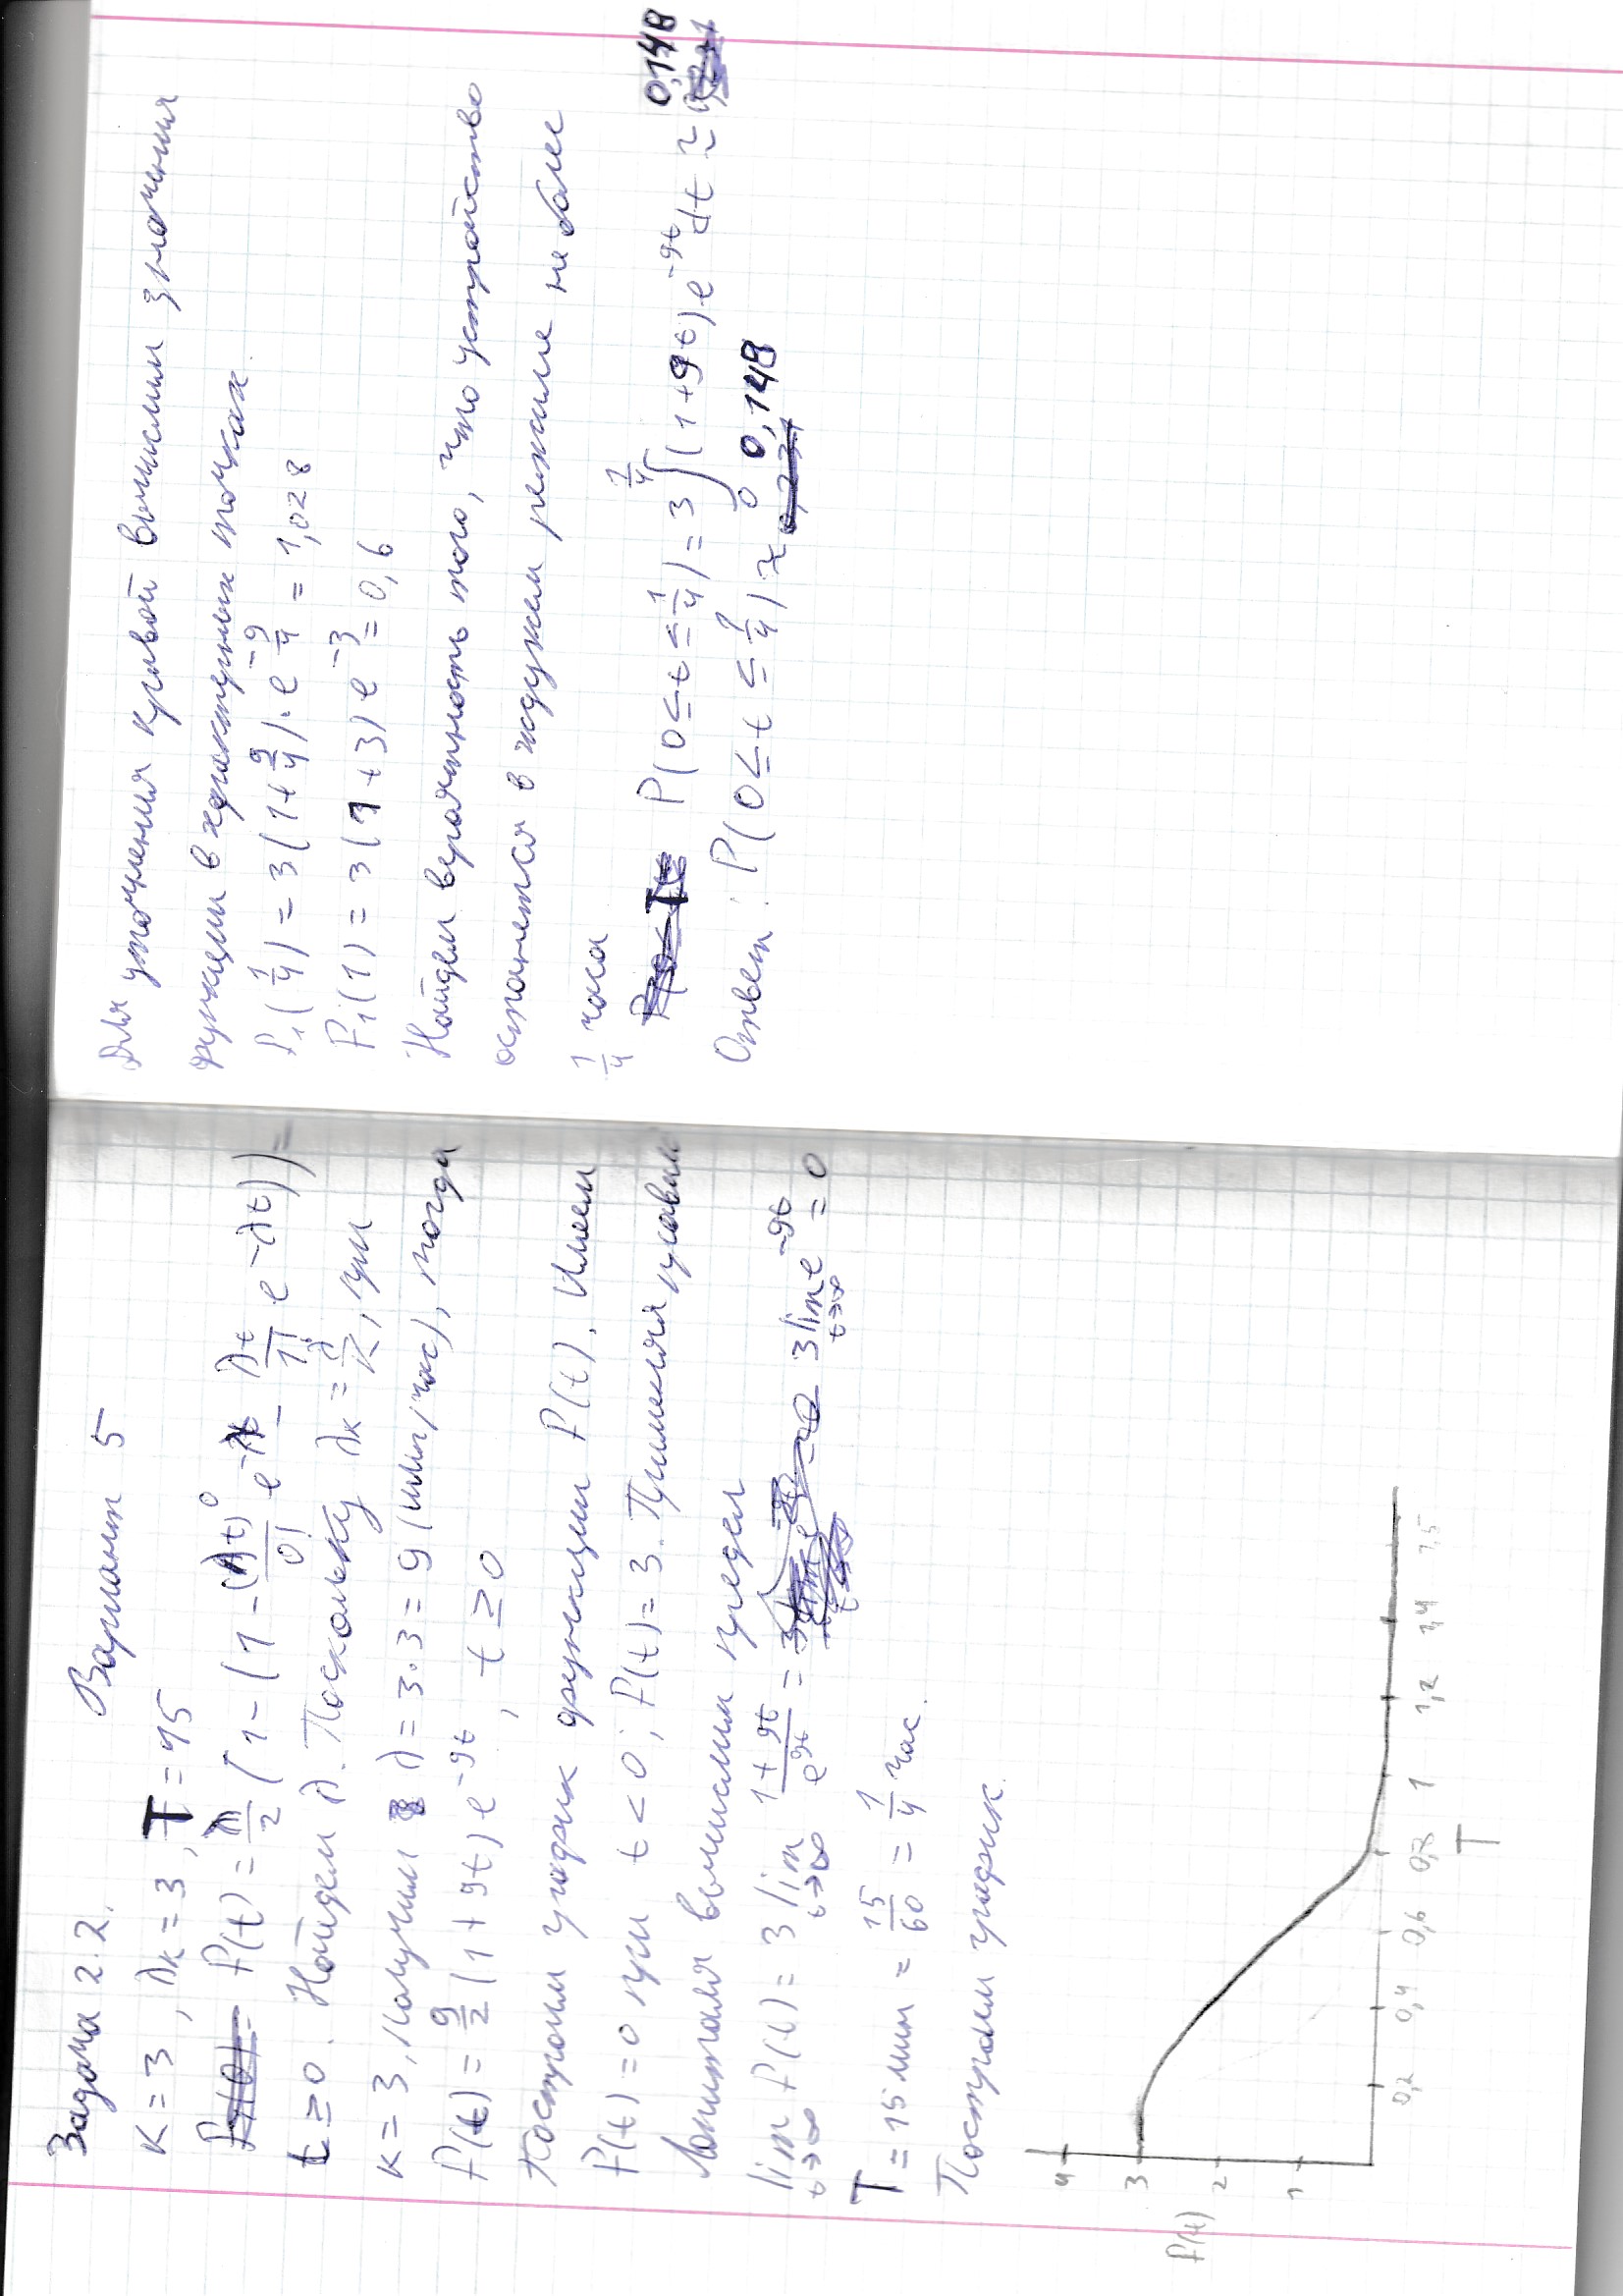 Задача 2.2. Вариант 5
K = 3, λк = 3, T = 15
f(t) = λ/2 (1 - (1 - (λt)⁰/0! e^-λt - λt/1! e^-λt)) =
t ≥ 0. Найдем λ. Поскольку λк = λ/K, при
K = 3, получим λ = 3·3 = 9 (имп/час), тогда
f(t) = 9/2 (1 + 9t) e^-9t, t ≥ 0
Построим график функции f(t). Имеем
f(t) = 0 при t < 0; f(t) = 3. Применяя правило
Лопиталя вычислим предел
lim t→∞ f(t) = 3 lim t→∞ (1 + 9t)/e^9t = 3 lim t→∞ e^-9t = 0
T = 15 мин = 15/60 = 1/4 час.
Построим график.
4
3
f(t)
2
1
0,2 0,4 0,6 0,8 1 1,2 1,4 1,5
T
Для уточнения кривой вычислим значения
функции в характерных точках.
f₁(1/4) = 3(1 + 9/4)·e^-9/4 = 1,028
f₁(1) = 3(1 + 3) e^-3 = 0,6
Найдем вероятность того, что устройство
останется в ждужем режиме не более
1/4 часа
P(0 ≤ t ≤ 1/4) = 3 ∫₀^1/4 (1 + 9t) e^-9t dt ≈ 0,148
Ответ: P(0 ≤ t ≤ 1/4) ≈ 0,148